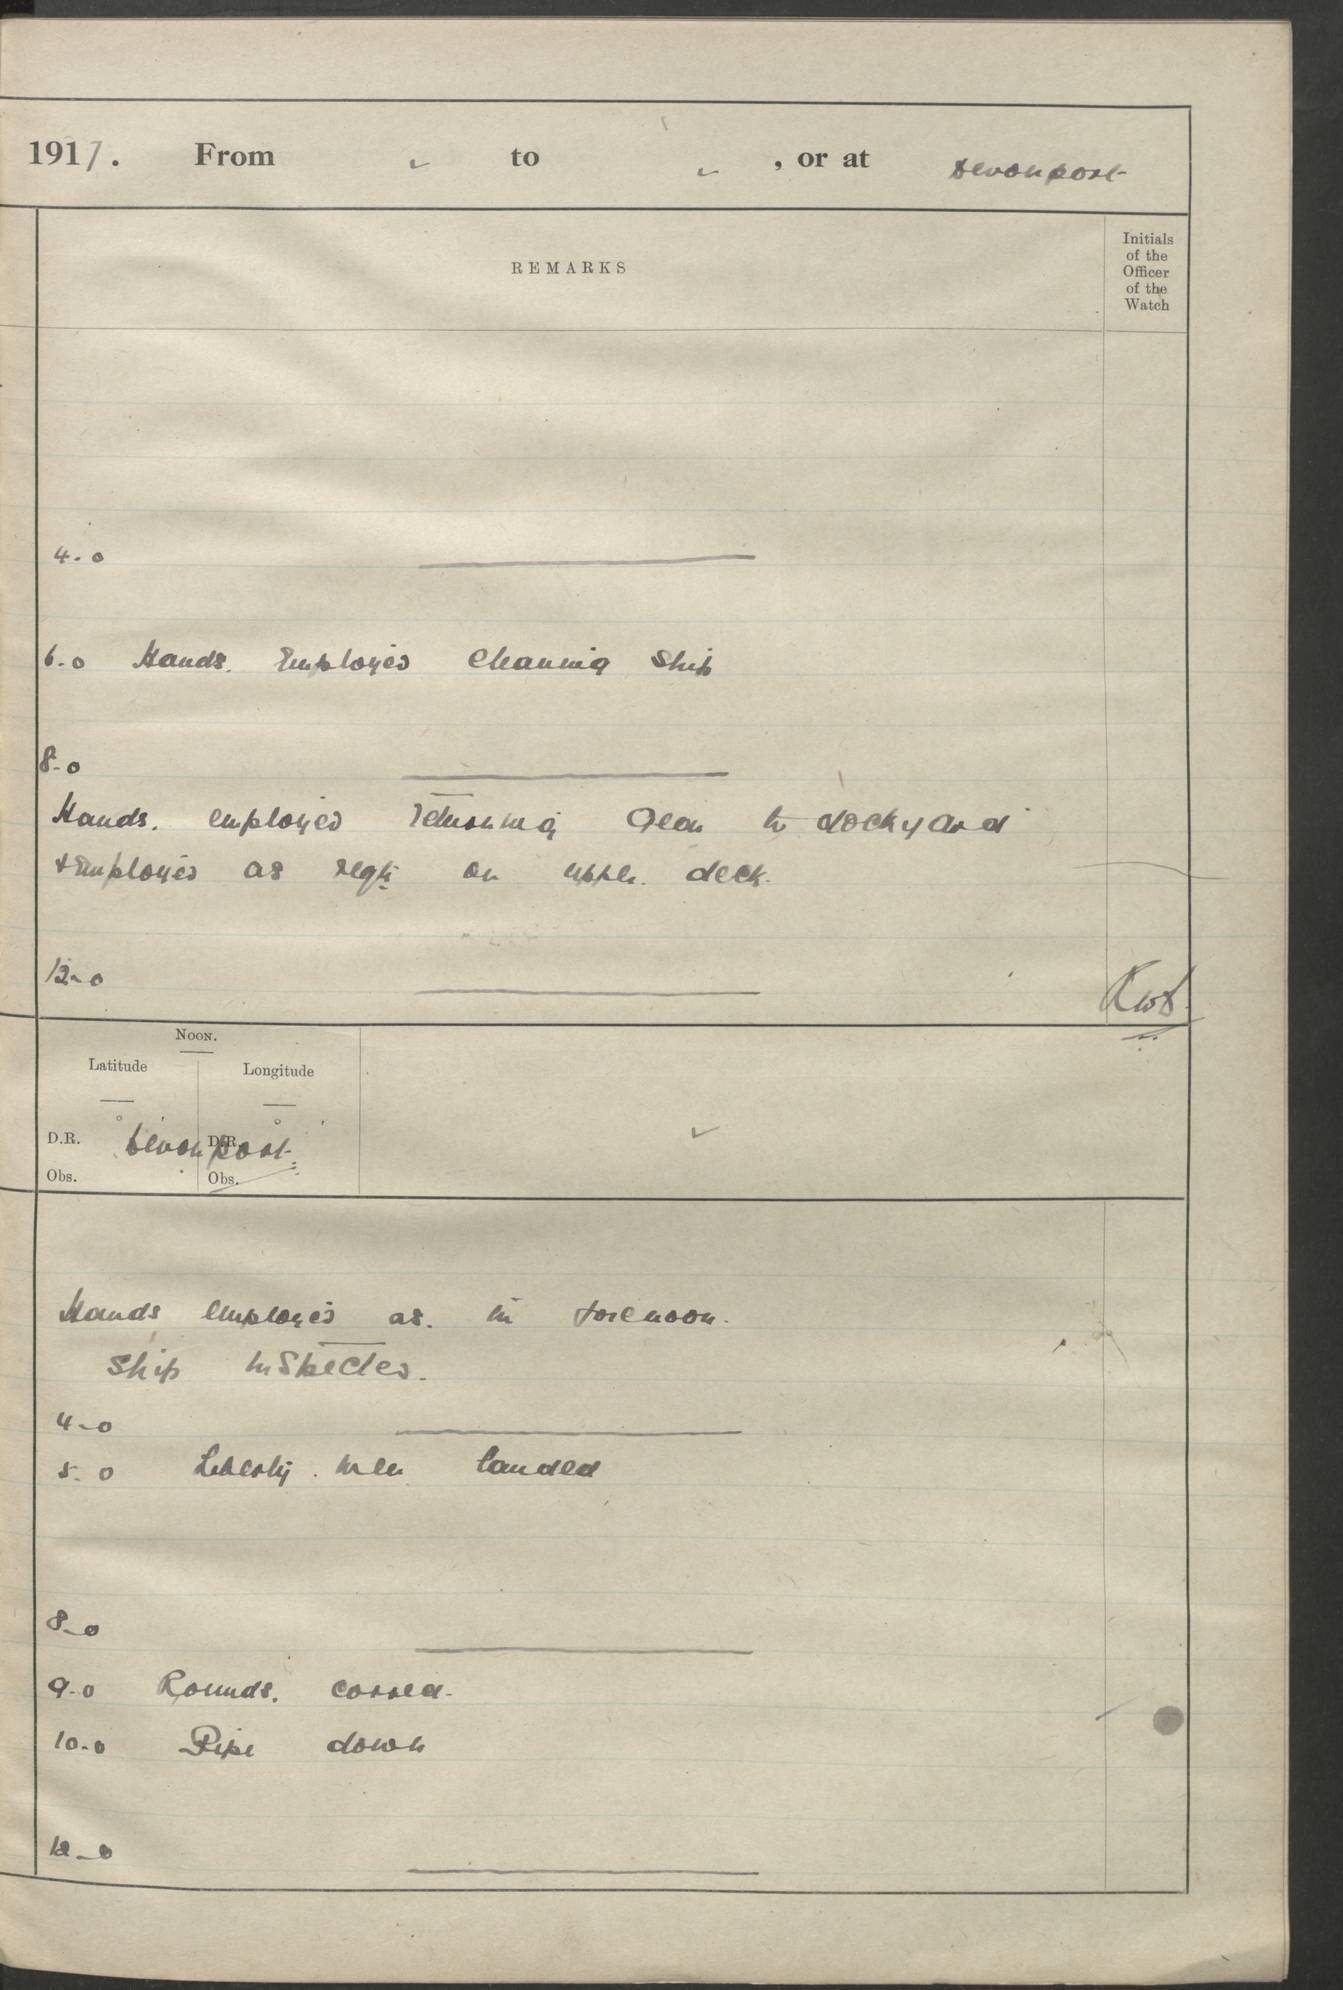 1917. From ✓ to ✓, or at Devonport
REMARKS
Initials
of the
Officer
of the
Watch
4-0
6-0 Hands Employed Cleaning Ship
8-0
Hands. employed returning Gear to dockyard
& Employed as reqd on upper deck.
12-0
NOON.
Latitude Longitude
D.R. Devonport D.R.
Obs. Obs.
✓
Hands employed as in forenoon.
Ship inspected.
4-0
5-0 Liberty men landed
8-0
9-0 Rounds. correct.
10-0 Pipe down
12-0